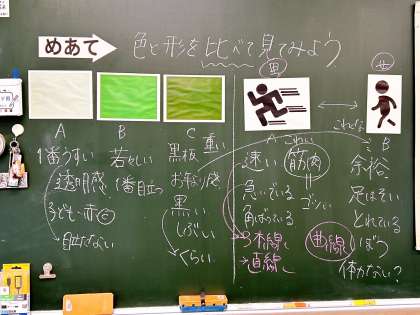 めあて
色と形を比べて見てみよう
A
B
C
1番うすい
透明感
子ども・赤㋠
目立たない
若々しい
1番目立つ
黒板 重い
おちつく感
黒い
しぶい
くらい
A
こわい
速い
筋肉
急いでいる
ゴツい
角ばっている
3本線
直線
曲線
B
余裕
足はほそい
とれている
体力ない?